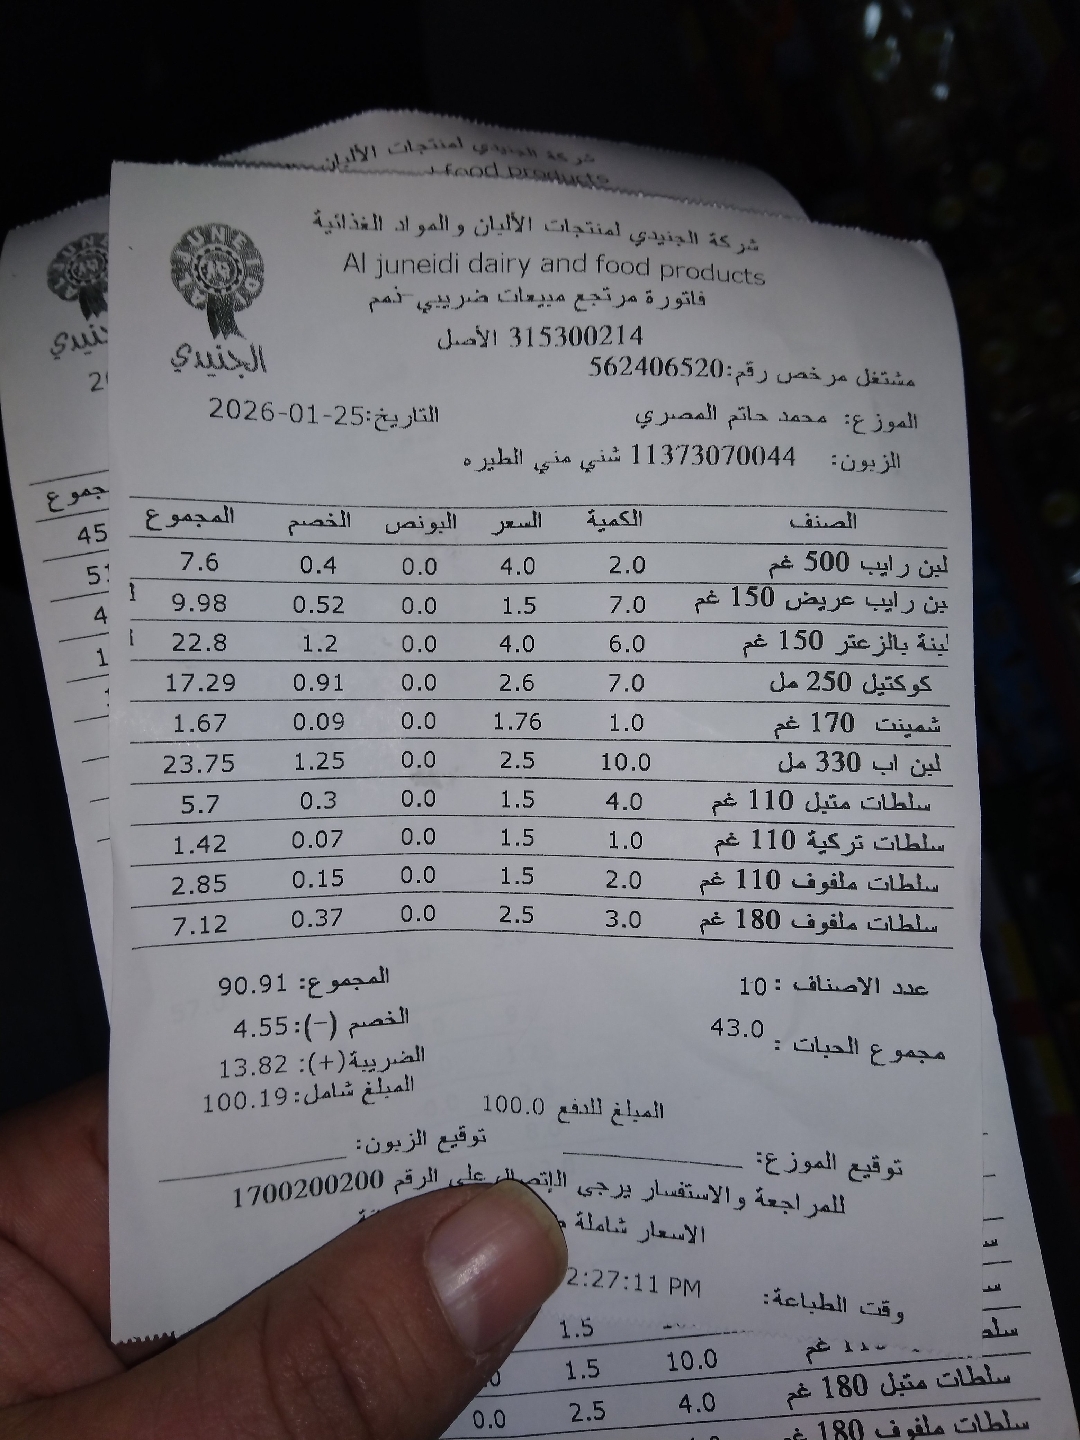 شركة الجنيدي لمنتجات الألبان
food products
شركة الجنيدي لمنتجات الألبان والمواد الغذائية
Al juneidi dairy and food products
فاتورة مرتجع مبيعات ضريبي - ذمم
315300214 الأصل
الجنيدي
مشتغل مرخص رقم:562406520
الموزع: محمد حاتم المصري التاريخ:2026-01-25
الزبون: 11373070044 شني مني الطيره
الصنف الكمية السعر البونص الخصم المجموع
لبن رايب 500 غم 2.0 4.0 0.0 0.4 7.6
بن رايب عريض 150 غم 7.0 1.5 0.0 0.52 9.98
لبنة بالزعتر 150 غم 6.0 4.0 0.0 1.2 22.8
كوكتيل 250 مل 7.0 2.6 0.0 0.91 17.29
شمينت 170 غم 1.0 1.76 0.0 0.09 1.67
لبن اب 330 مل 10.0 2.5 0.0 1.25 23.75
سلطات متبل 110 غم 4.0 1.5 0.0 0.3 5.7
سلطات تركية 110 غم 1.0 1.5 0.0 0.07 1.42
سلطات ملفوف 110 غم 2.0 1.5 0.0 0.15 2.85
سلطات ملفوف 180 غم 3.0 2.5 0.0 0.37 7.12
عدد الاصناف : 10 المجموع: 90.91
مجموع الحبات : 43.0 الخصم (-):4.55
الضريبة(+): 13.82
المبلغ شامل:100.19
المبلغ للدفع 100.0
توقيع الموزع: توقيع الزبون:
للمراجعة والاستفسار يرجى الإتصال على الرقم 1700200200
الاسعار شاملة
وقت الطباعة: 2:27:11 PM
1.5
غم 10.0 1.5
سلطات متبل 180 غم 4.0 2.5 0.0
سلطات ملفوف 180 غم